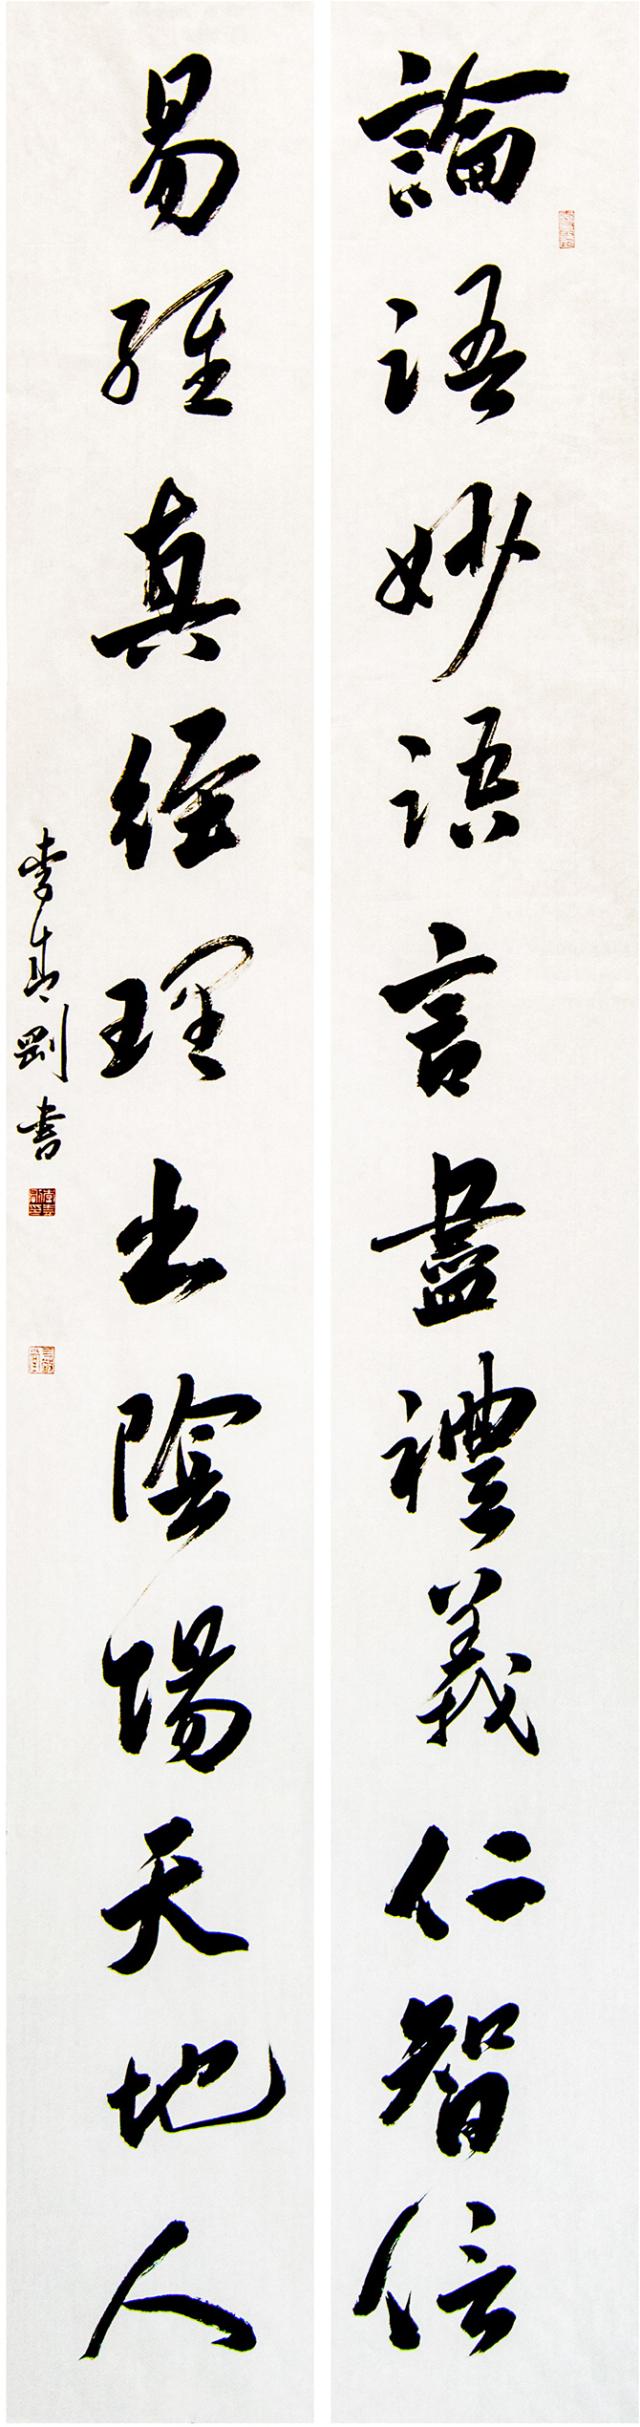 論語妙語言盡禮義仁智信
易經真經理出陰陽天地人
李春剛書